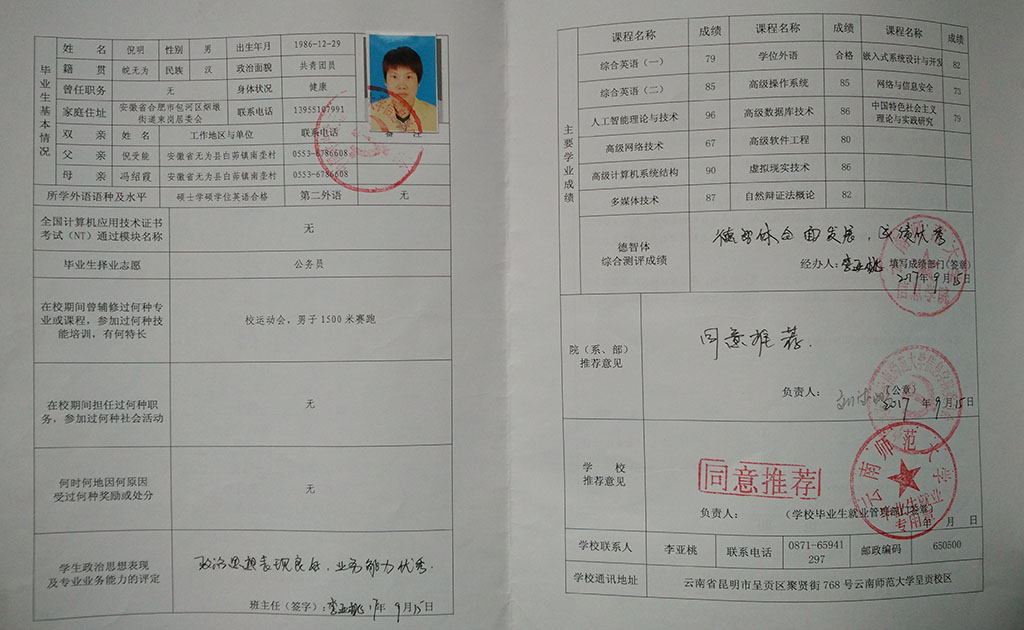 毕业生基本情况
姓 名 倪明 性别 男 出生年月 1986-12-29
籍 贯 皖无为 民族 汉 政治面貌 共青团员
曾任职务 无 身体状况 健康
家庭住址 安徽省合肥市包河区烟墩
街道束岗居委会 联系电话 13955107991
双 亲 姓 名 工作地区与单位 联系电话 备 注
父 亲 倪受能 安徽省无为县白茆镇南垄村 0553-6786608
母 亲 冯绍霞 安徽省无为县白茆镇南垄村 0553-6786608
所学外语语种及水平 硕士学硕学位英语合格 第二外语 无
全国计算机应用技术证书
考试(NT)通过模块名称 无
毕业生择业志愿 公务员
在校期间曾辅修过何种专
业或课程,参加过何种技
能培训,有何特长
校运动会,男子1500米赛跑
在校期间担任过何种职
务,参加过何种社会活动
无
何时何地因何原因
受过何种奖励或处分
无
学生政治思想表现
及专业业务能力的评定
政治思想表现良好,业务能力优秀.
班主任(签字):李亚桃 17年 9月15日
主要学业成绩
课程名称 成绩 课程名称 成绩 课程名称 成绩
综合英语(一) 79 学位外语 合格 嵌入式系统设计与开发 82
综合英语(二) 85 高级操作系统 85 网络与信息安全 73
人工智能理论与技术 96 高级数据库技术 86 中国特色社会主义
理论与实践研究 79
高级网络技术 67 高级软件工程 80
高级计算机系统结构 90 虚拟现实技术 86
多媒体技术 87 自然辩证法概论 82
德智体
综合测评成绩
德智体全面发展,成绩优秀.
经办人:李亚桃 填写成绩部门(签章)
2017年9月15日
院(系、部)
推荐意见
同意推荐.
负责人:
(公章)
2017年9月15日
学 校
推荐意见
同意推荐
负责人: (学校毕业生就业管理部门签章)
年 月 日
云南师范大学
毕业生就业
专用章
学校联系人 李亚桃 联系电话 0871-65941
297 邮政编码 650500
学校通讯地址 云南省昆明市呈贡区聚贤街768号云南师范大学呈贡校区